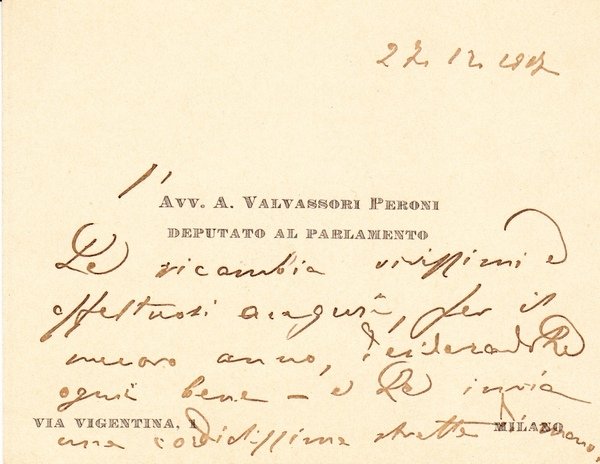 27. 12. 1917
l'
AVV. A. VALVASSORI PERONI
DEPUTATO AL PARLAMENTO
Le ricambia vivissimi e
affettuosi auguri, per il
nuovo anno, desiderandoLe
ogni bene - e Le invia
VIA VIGENTINA, 1 MILANO
una cordialissima stretta di mano.